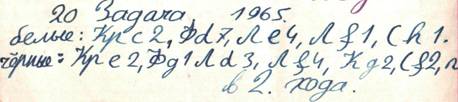 20 Задача 1965.
белые: Крс2, Фd7, Ле4, Лf1, Сh1.
чёрные: Кре2, Фg1 Лd3, Лf4, Кg2, Сf2, п
в 2. хода.